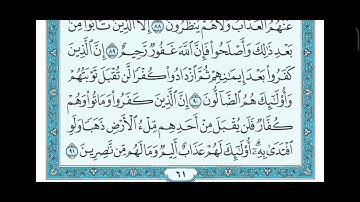 عَنْهُمُ ٱلْعَذَابُ وَلَا هُمْ يُنظَرُونَ ٨٨ إِلَّا ٱلَّذِينَ تَابُوا۟ مِنۢ
بَعْدِ ذَٰلِكَ وَأَصْلَحُوا۟ فَإِنَّ ٱللَّهَ غَفُورٌ رَّحِيمٌ ٨٩ إِنَّ ٱلَّذِينَ
كَفَرُوا۟ بَعْدَ إِيمَٰنِهِمْ ثُمَّ ٱزْدَادُوا۟ كُفْرًا لَّن تُقْبَلَ تَوْبَتُهُمْ
وَأُو۟لَٰٓئِكَ هُمُ ٱلضَّآلُّونَ ٩٠ إِنَّ ٱلَّذِينَ كَفَرُوا۟ وَمَاتُوا۟ وَهُمْ
كُفَّارٌ فَلَن يُقْبَلَ مِنْ أَحَدِهِم مِّلْءُ ٱلْأَرْضِ ذَهَبًا وَلَوِ
ٱفْتَدَىٰ بِهِۦٓ أُو۟لَٰٓئِكَ لَهُمْ عَذَابٌ أَلِيمٌ وَمَا لَهُم مِّن نَّٰصِرِينَ ٩١
٦١